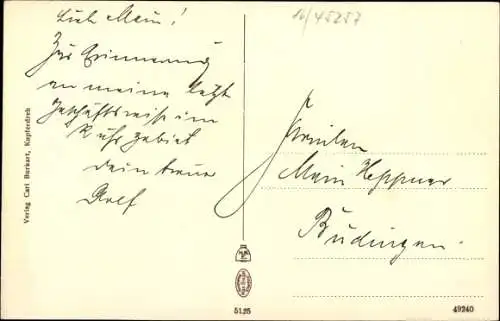 Lieb Mein!
Zur Erinnerung
an meine letzt
Geschäftsreise im
Ruhrgebiet
dein treuer
Rolf
16/45257
Fräulein
Mein Heppner
Büdingen.
Verlag Carl Burkart, Kupferdreh
5125
49240